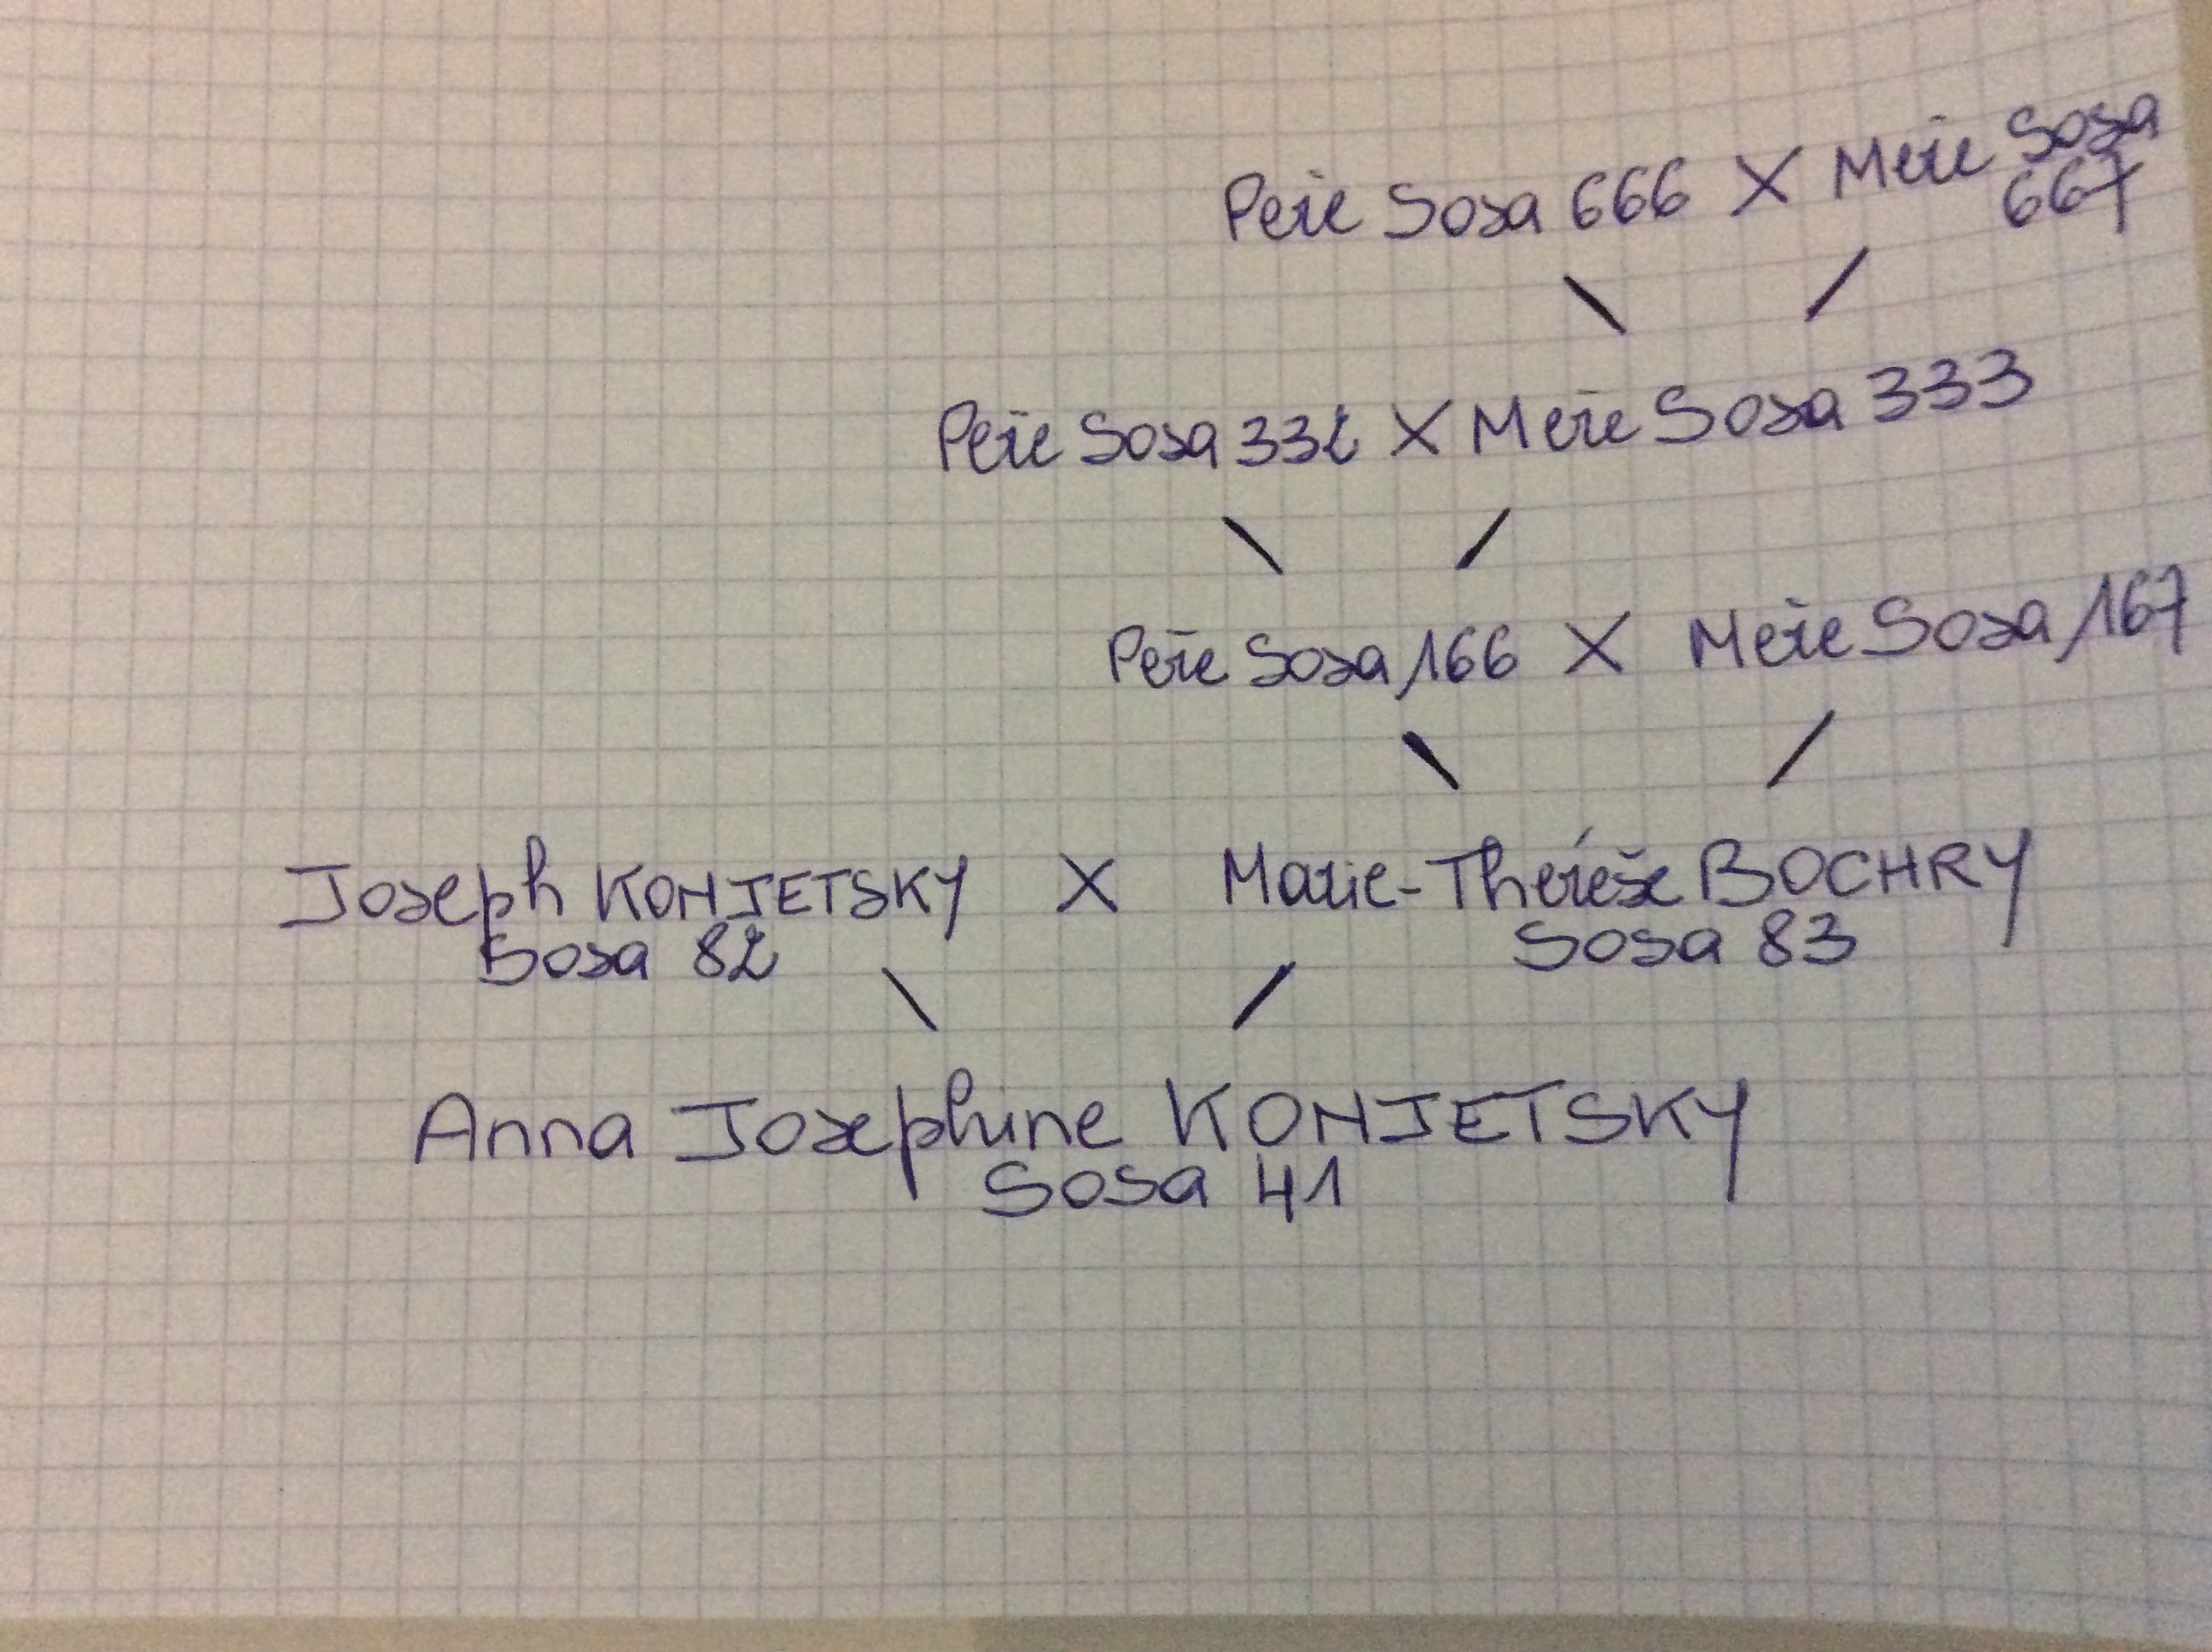 Père Sosa 666 X Mère Sosa
667
Père Sosa 332 X Mère Sosa 333
Père Sosa 166 X Mère Sosa 167
Joseph KONJETSKY X Marie-Thérèse BOCHRY
Sosa 82 Sosa 83
Anna Josephine KONJETSKY
Sosa 41